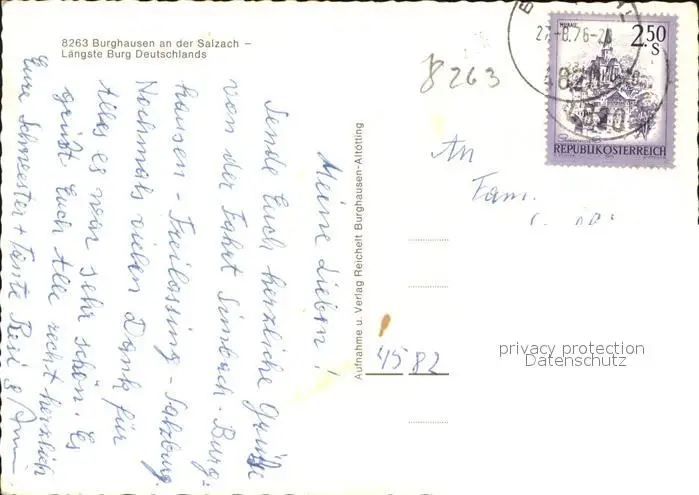 8263 Burghausen an der Salzach –
Längste Burg Deutschlands
Meine Lieben!
Sende Euch herzliche Grüße
von der Fahrt Simbach-Burg-
hausen-Freilassing-Salzburg.
Nochmals vielen Dank für
Alles es war sehr schön. Es
grüßt Euch Alle recht herzlich
Eure Schwester + Tante Resi &
Aufnahme u. Verlag Reichelt Burghausen-Altötting
8263
27.-8.76-
MURAU
2.50
S
REPUBLIK ÖSTERREICH
An
Fam.
4582
privacy protection
Datenschutz